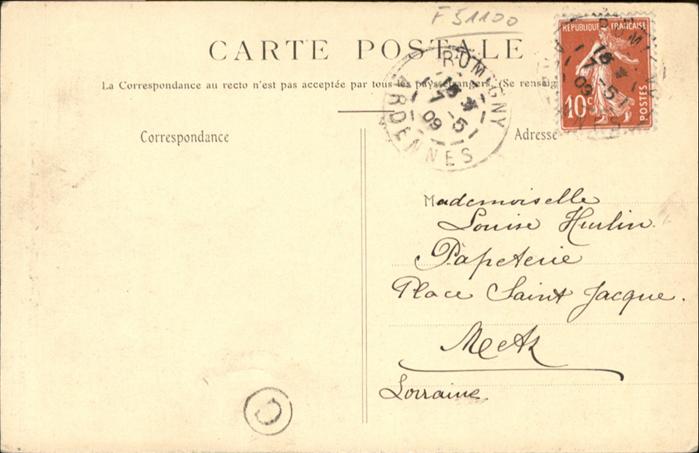 F 51100
CARTE POSTALE
La Correspondance au recto n'est pas acceptée par tous les pays étrangers. (Se renseig
Correspondance
Adresse
RUMIGNY
ARDENNES
7 -5
09
RÉPUBLIQUE FRANÇAISE
10c
POSTES
Mademoiselle
Louise Hurlin
Papeterie
Place Saint Jacque.
Metz
Lorraine.
C